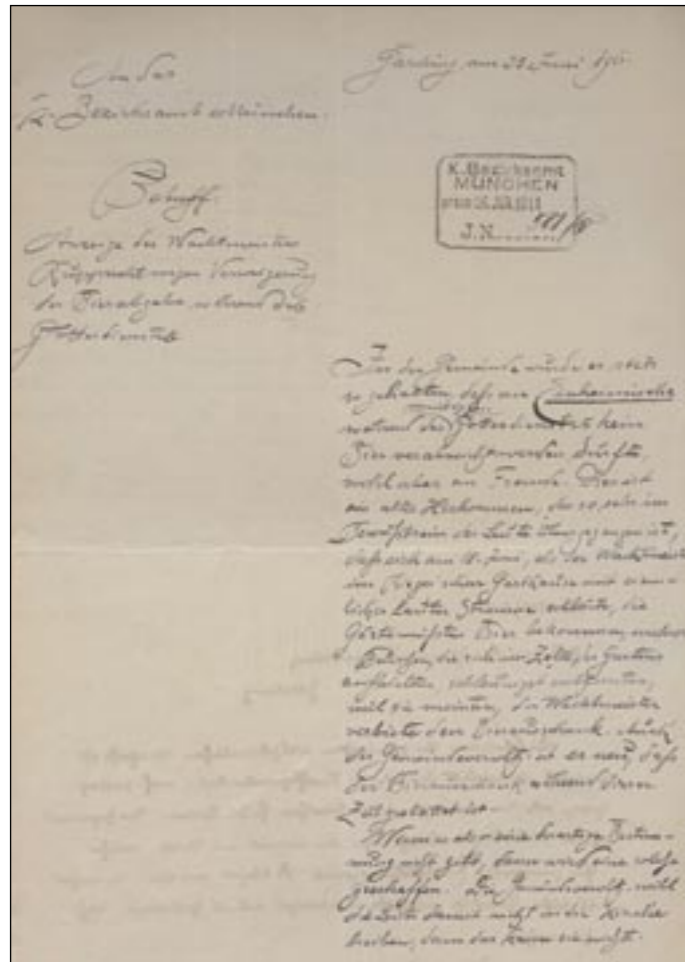 An das
K. Bezirksamt München.
Garching, am 22 Juni
Betreff.
Anzeige des Wachtmeisters
Rupprecht wegen Verweigerung
der Bierabgabe während des
Gottesdienstes
K. Bezirksamt
MÜNCHEN
J.N.
In der Gemeinde wurde es stets
so gehalten, daß an Einheimische
während des Gottesdienstes kein
Bier verabreicht werden durfte,
wohl aber an Fremde. Dies ist
ein altes Herkommen, das so sehr im
Bewußtsein der Leute übergegangen ist,
daß sich am Juni, als der Wachtmeister
im Gasthause mit
licher lauter Stimme erklärte, die
Gäste müßten Bier bekommen, mehrere
Burschen, die sich im Zelte des Gartens
aufhielten, schleunigst entfernten,
weil sie meinten, der Wachtmeister
verbiete den Bierausschank. Auch
der Gemeindeverwaltg. ist es neu, daß
der Bierausschank während dieser
Zeit gestattet ist.
Wenn es also eine derartige Bestim-
mung nicht gibt, dann wird eine solche
geschaffen. Die Gemeindeverwaltg. will
die Leute damit nicht in die Kirche
treiben, denn das kann sie nicht.